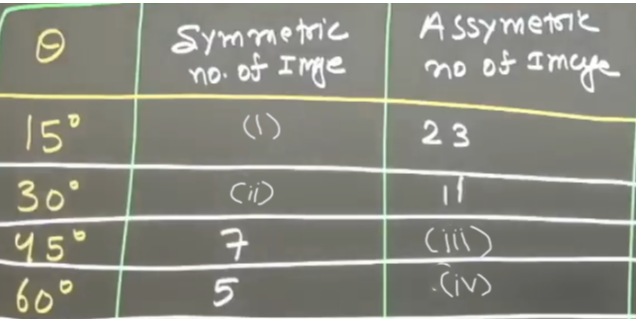 θ
Symmetric
no. of Imge
Assymetric
no of Image
15°
(i)
23
30°
(ii)
11
45°
7
(iii)
60°
5
(iv)